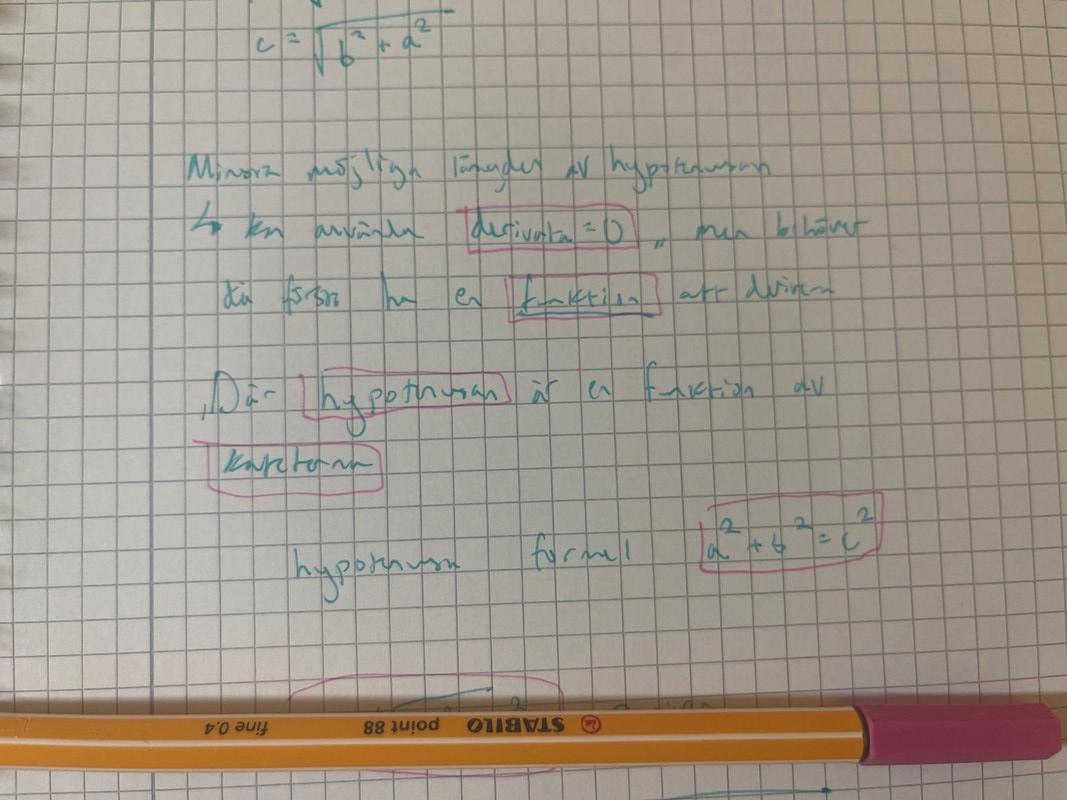 c = √b² + a²
Minsta möjliga längden av hypotenusan
↳ kan använda derivata = 0 „ men behöver
då först ha en funktion att derivera
Där hypotenusan är en funktion av
kateterna
hypotenusa formel a² + b² = c²
STABILO point 88 fine 0.4